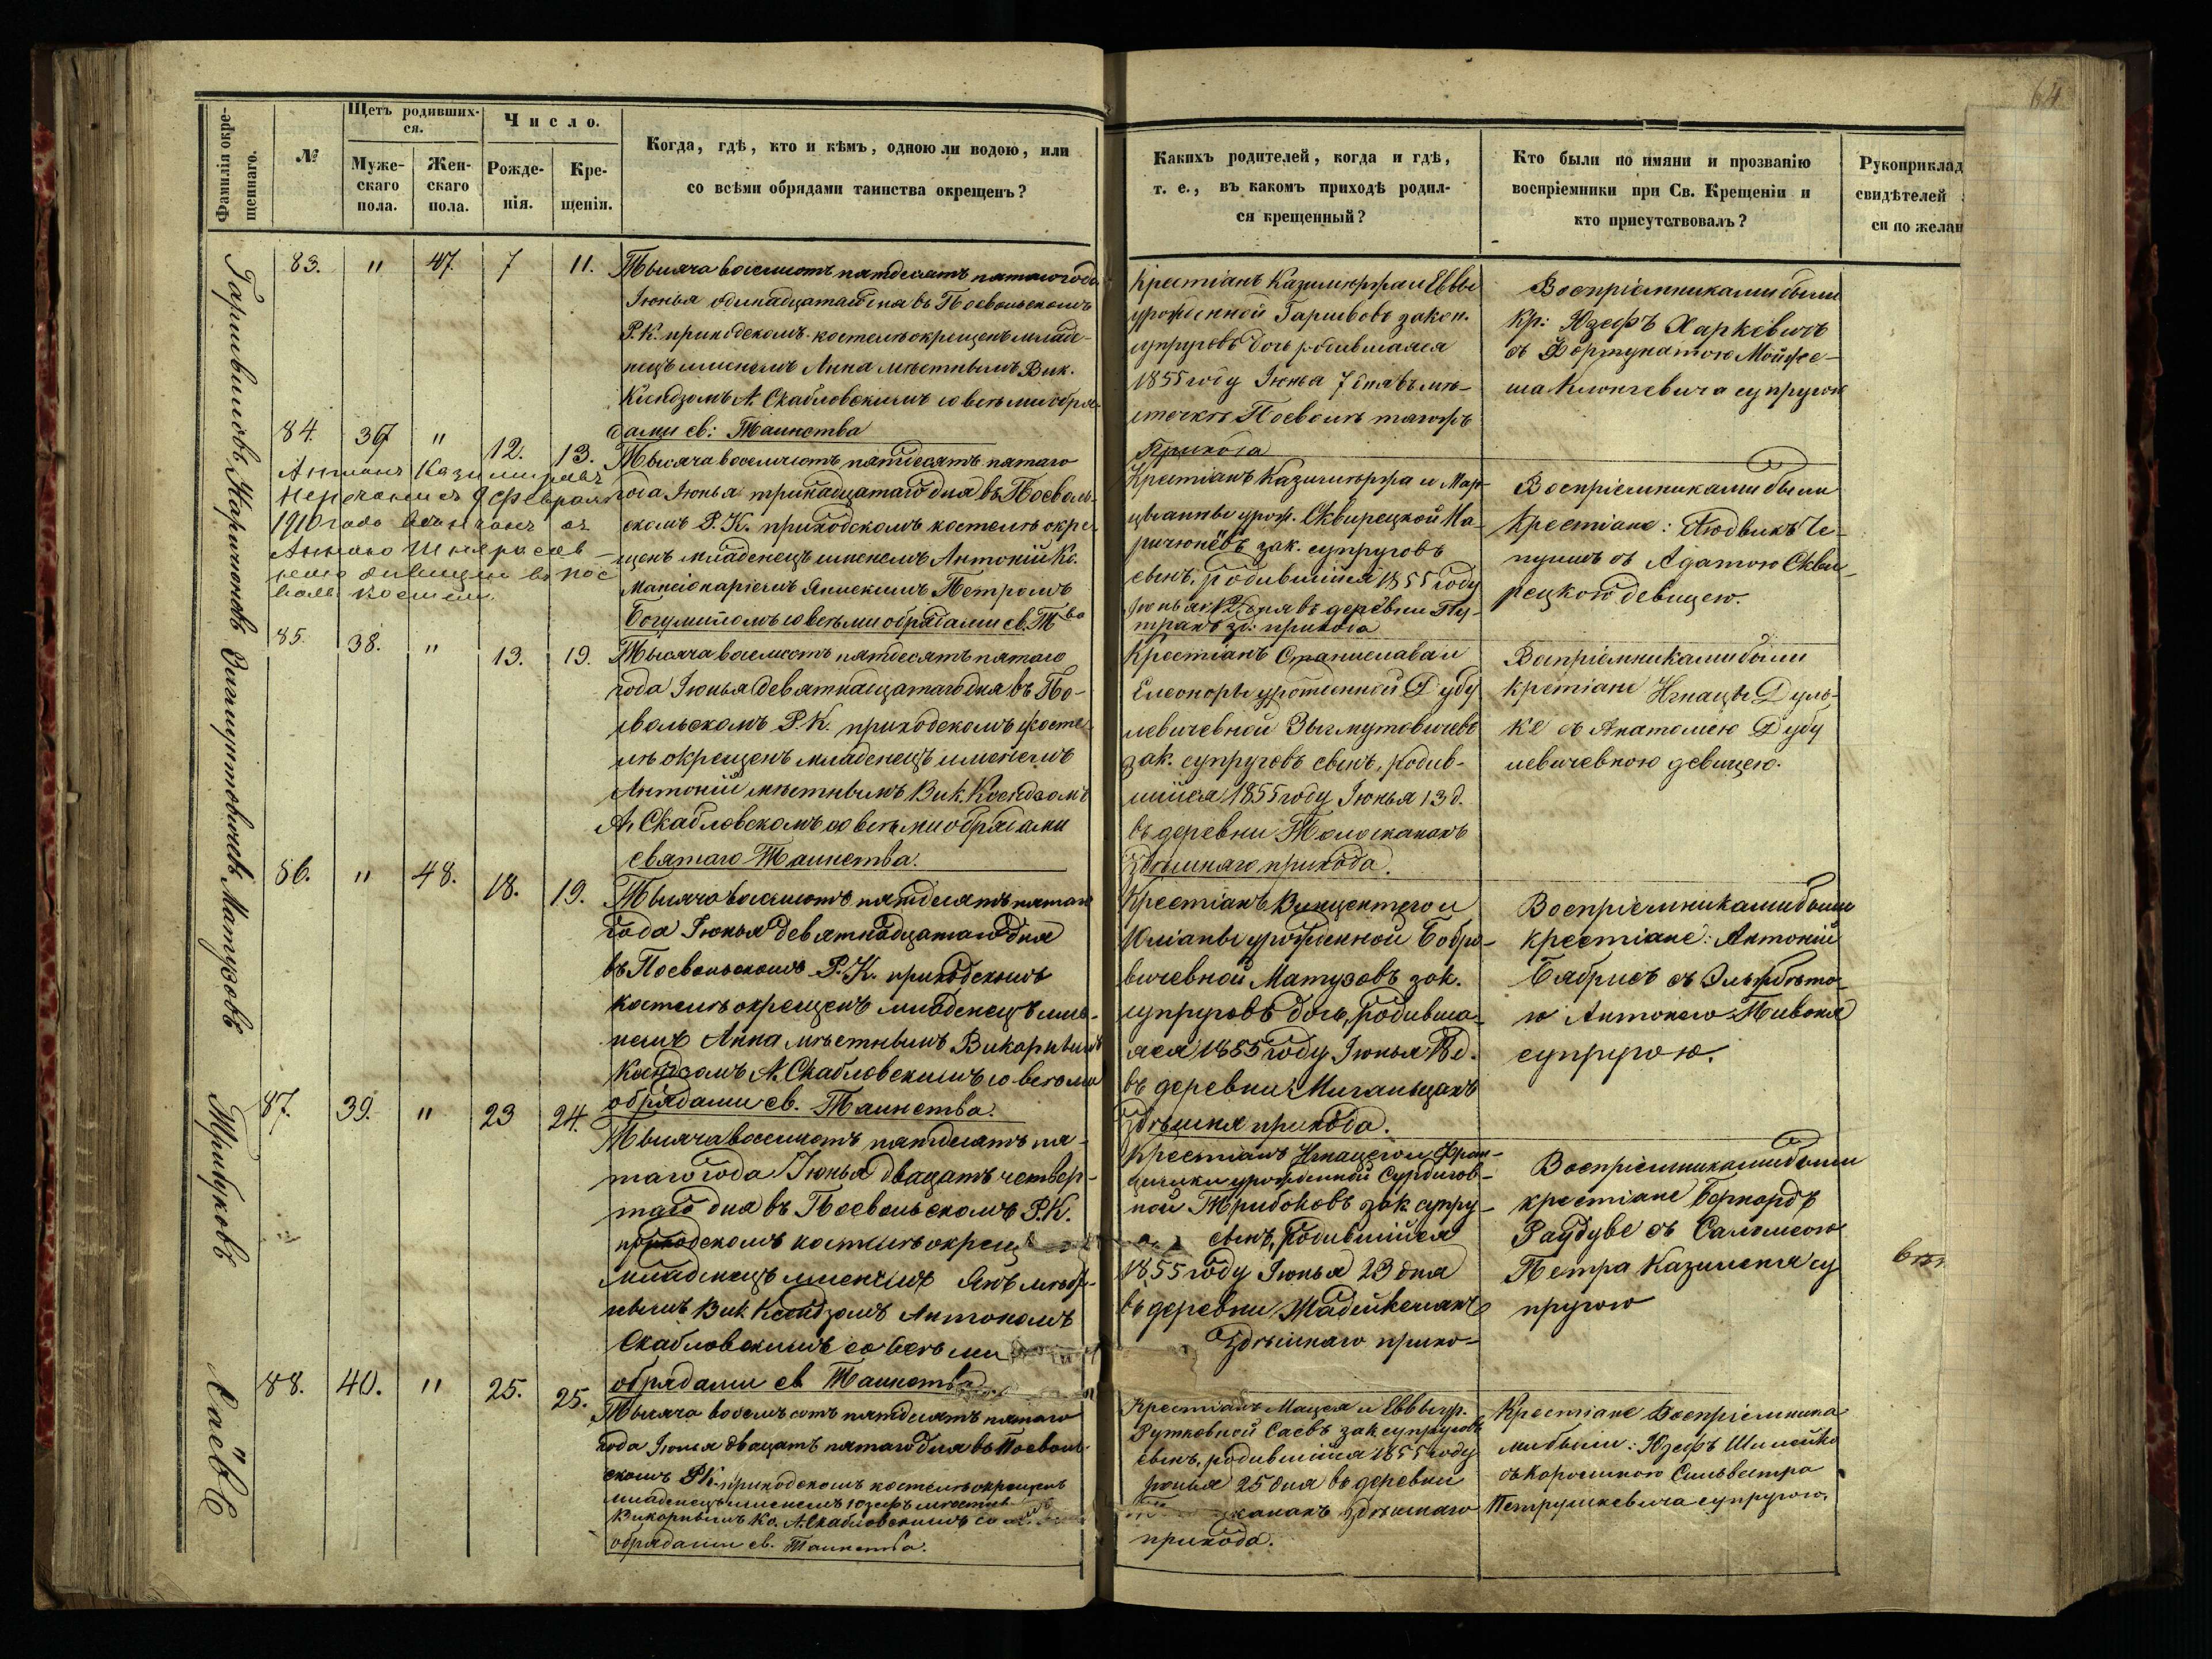 64
Фамилія окре-
щеннаго.
№
Щетъ родивших-
ся.
Муже-
скаго
пола.
Жен-
скаго
пола.
Число.
Рожде-
нія.
Кре-
щенія.
Когда, гдѣ, кто и кѣмъ, одною ли водою, или
со всѣми обрядами таинства окрещенъ?
Какихъ родителей, когда и гдѣ,
т. е., въ какомъ приходѣ родил-
ся крещенный?
Кто были по имяни и прозванію
воспріемники при Св. Крещеніи и
кто присутствовалъ?
Рукоприклад
свидѣтелей
си по желан
83. " 47. 7 11.
Тысяча восемсотъ пятдесятъ пятаго года
Іюнья одинадцатаго дня въ Посвольскомъ
Р. К. приходскомъ костелѣ окрещенъ младе-
нецъ именемъ Анна мѣстнымъ Вик.
Ксіндзомъ А. Скабловскимъ со всѣми обря-
дами св: Таинства
Крестіанъ Казимержа и Еввы
урожденной Гаршвовъ закон.
супруговъ дочь родившаяся
1855 году Іюнья 7 дня въ мѣ-
стечкѣ Посволѣ тагожъ
Прихода
Воспріемниками были
Кр: Юзефъ Харкевичъ
съ Фортунатою Мойже-
ша супругою
84. 37 " 12. 13.
Антонъ Казимировъ
9 февраля
1910 года вѣнчанъ съ
Анною
девицею въ пос
вол. костел.
Тысяча восемсотъ пятдесятъ пятаго
года Іюнья тринадцатаго дня въ Посволь-
скомъ Р. К. приходскомъ костелѣ окре-
щенъ младенецъ именемъ Антоній Кс.
Мансіонаріемъ Петромъ
со всѣми обрядами св. Тва
Крестіанъ Казимержа и Мар-
цыанны урож. Сквирецкой На-
ричюнёвъ зак. супруговъ
сынъ, родившійся 1855 году
Іюнья 12 дня въ деревни Пу-
транъ зд: прихода
Воспріемниками были
Крестіане: Людвикъ Че-
пушъ съ Агатою Скви-
рецкою девицею.
85. 38. " 13. 19.
Тысяча восемсотъ пятдесятъ пятаго
года Іюнья девятнадцатаго дня въ По-
свольскомъ Р. К. приходскомъ косте-
лѣ окрещенъ младенецъ именемъ
Антоній мѣстнымъ Вик. Ксіндзомъ
А. Скабловскомъ со всѣми обрядами
святаго Таинства.
Крестіанъ Станислава и
Елеоноры урожденной Дубу
левичевной Зыгмутовичевъ
зак. супруговъ сынъ, родив-
шійся 1855 году Іюнья 13 д.
въ деревни Толочканахъ
Здѣшняго прихода.
Воспріемниками были
крестіане Игнацы Дуль-
ке съ Анатолею Дубу
левичевною девицею.
86. " 48. 18. 19.
Тысяча восемсотъ пятдесятъ пятаго
года Іюнья девятнадцатаго дня
въ Посвольскомъ Р. К. приходскомъ
костелѣ окрещенъ младенецъ име-
немъ Анна мѣстнымъ Викарнымъ
Ксіндзомъ А. Скабловскимъ со всѣми
обрядами св. Таинства.
Крестіанъ Винцентего и
Юліаны урожденной Бобро-
вичевной Матузовъ зак.
супруговъ дочь, родивша-
яся 1855 году Іюнья 18 д.
въ деревни Миганьцахъ
Здѣшня прихода.
Воспріемниками были
крестіане: Антоній
Бябрисъ съ Эльжбѣто-
ю Антонего Пивоня
супругою.
87. 39. " 23 24.
Тысяча восемсотъ пятдесятъ пя-
таго года Іюнья двацать четвер-
таго дня въ Посвольскомъ Р. К.
приходскомъ костелѣ окрещ
младенецъ именемъ Янъ мѣст-
нымъ Вик. Ксіндзомъ Антономъ
Скабловскимъ со всѣми
обрядами св Таинства.
Крестіанъ Игнацего и Фран-
цишки урожденной Сурдигов-
ной Трибоковъ зак супру-
сынъ, родившійся
1855 году Іюнья 23 дня
въ деревни Жадейкенахъ
Здѣшняго прихо-
Воспріемниками были
крестіане Бернардъ
Раудуве съ Саломеею
Петра Казименя су
пругою
88. 40. " 25. 25.
Тысяча восемъ сотъ пятдесятъ пятаго
года Іюнья двацатъ пятаго дня въ Посволь-
скомъ РК. приходскомъ костелѣ окрещенъ
младенецъ именемъ Юзефъ мѣстнымъ
Викарнымъ Кс. А. Скабловскимъ со
обрядами св. Таинства.
Крестіанъ Мацея и Еввы ур.
Рутковной Саевъ зак супруговъ
сынъ, родившійся 1855 году
Іюнья 25 дня въ деревни
канахъ Здѣшняго
прихода.
Крестіане Воспріемника
ми были: Юзефъ Шилейко
съ Каролиною Сильвестра
Петрушкевича супругою.
Гаршвилловъ Наричюновъ Зыгмунтовичевъ Матузовъ
Трибуковъ
Саевъ